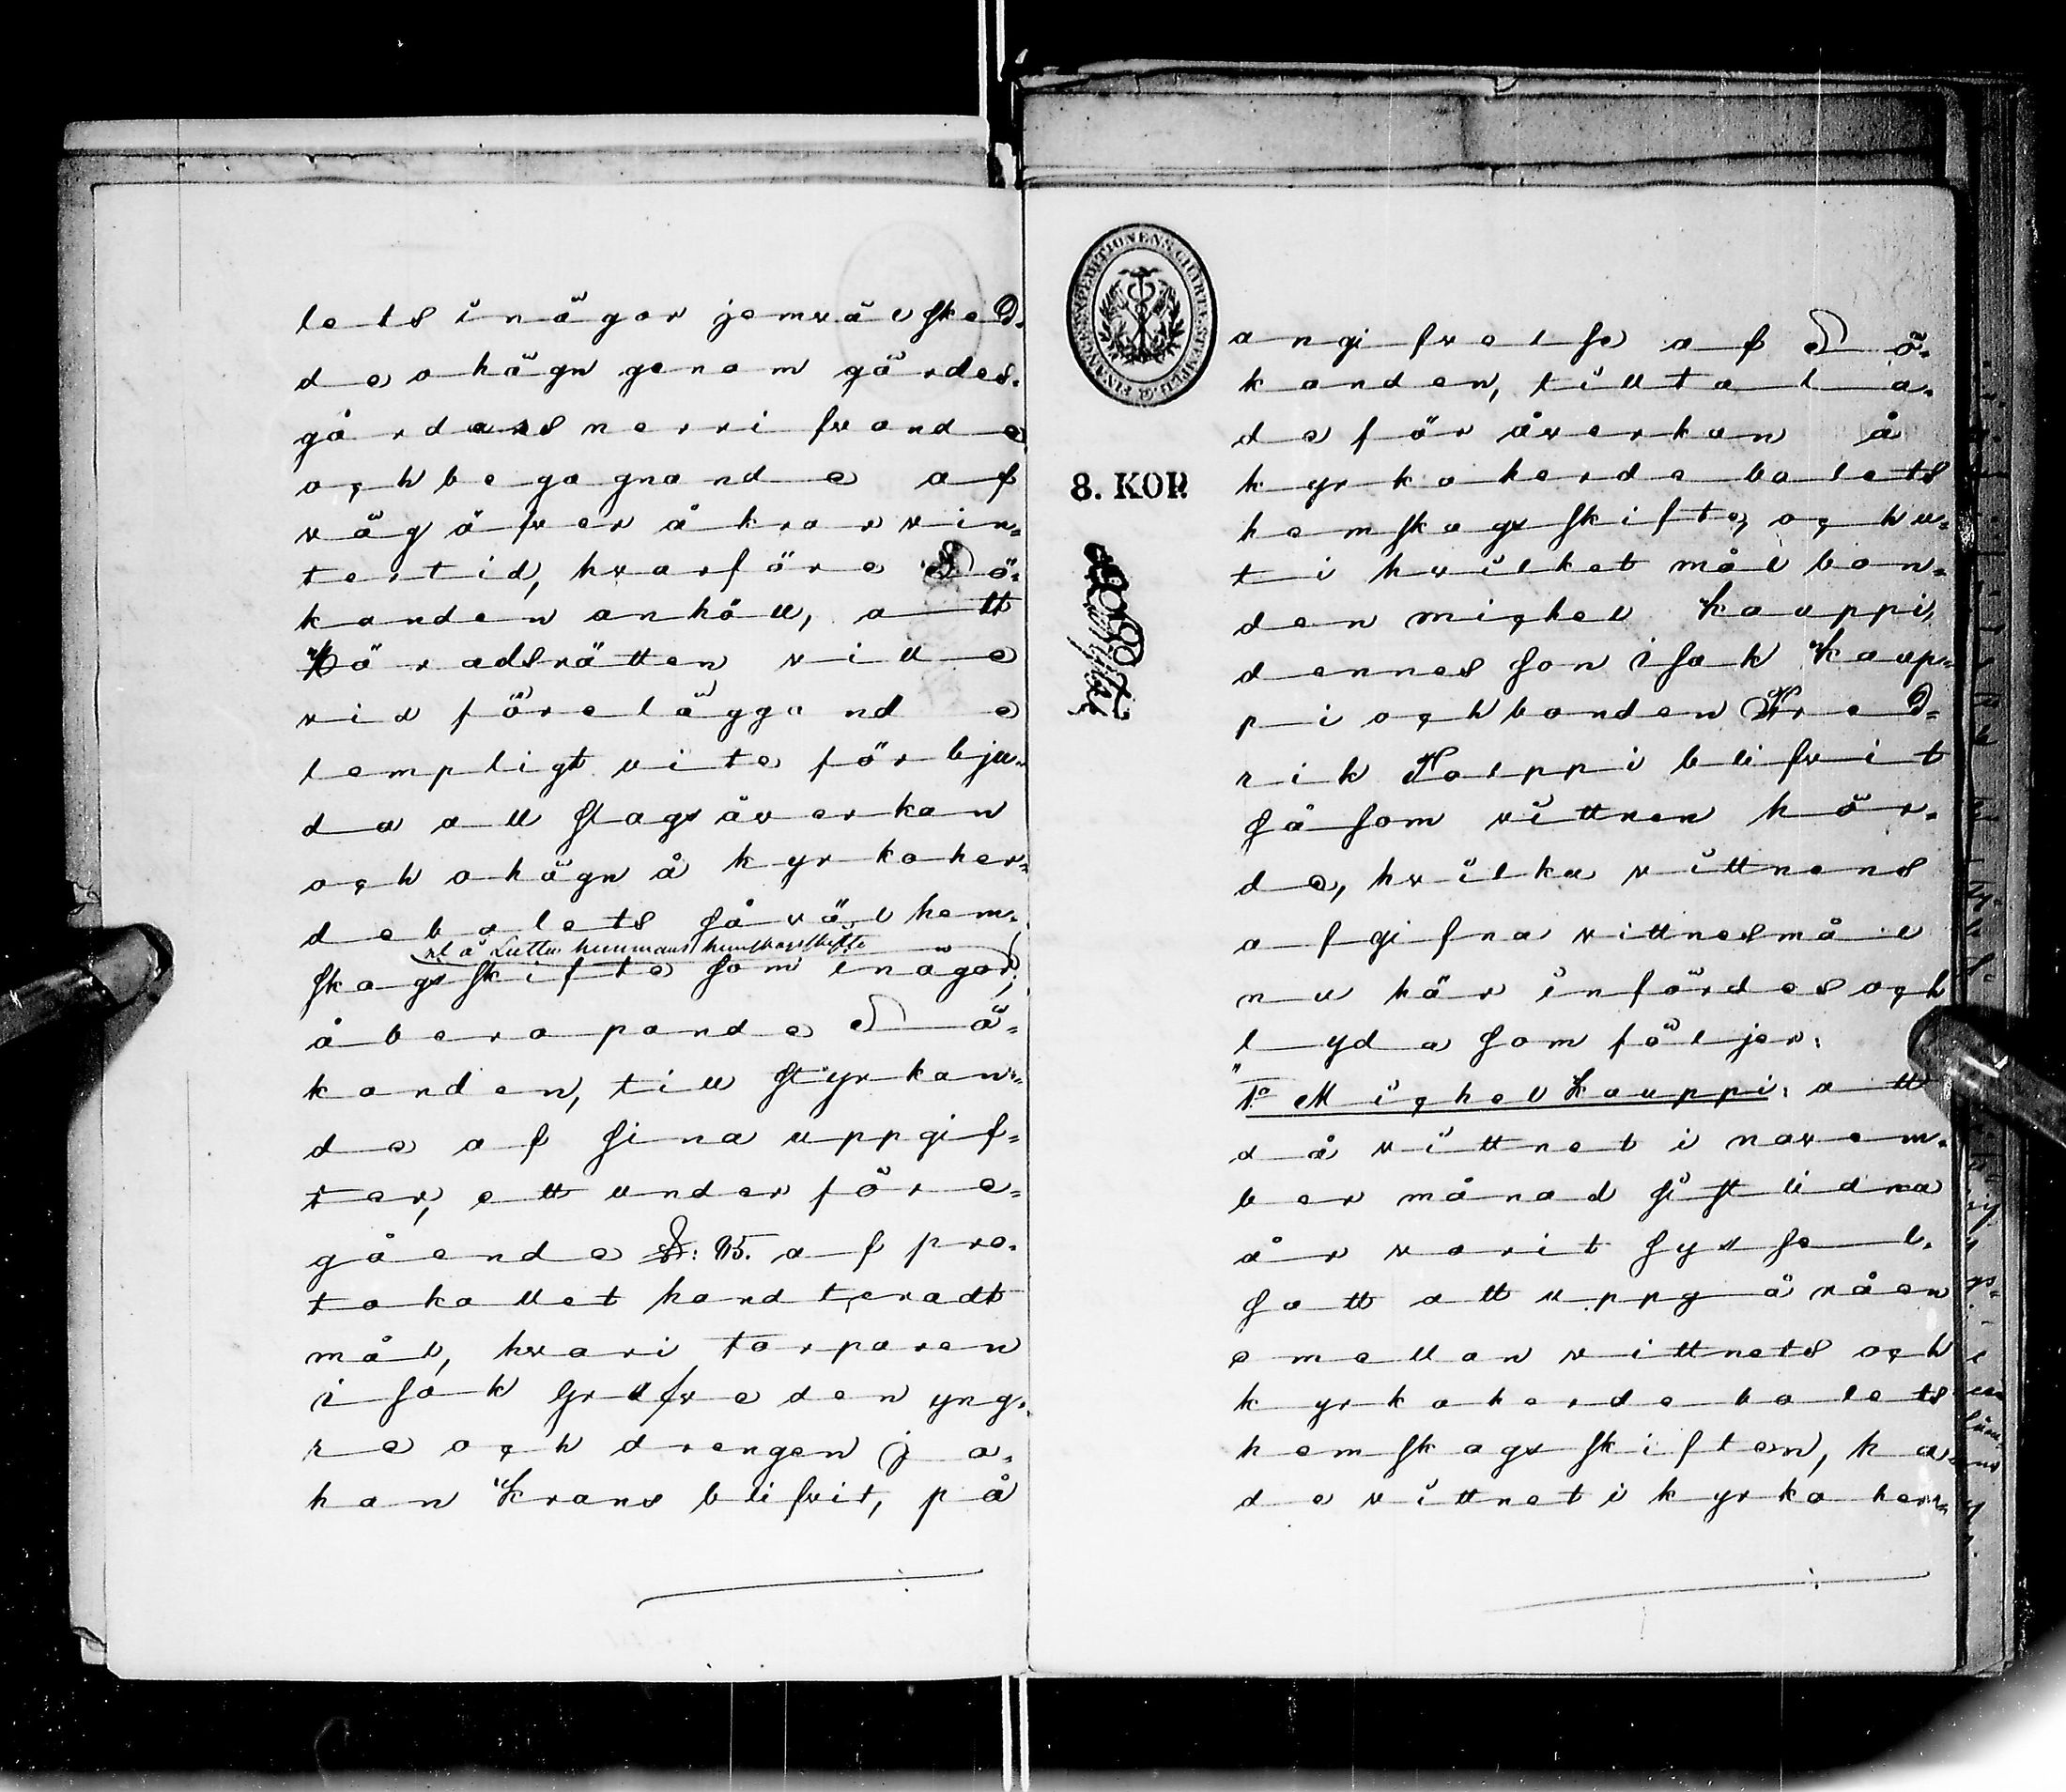 lets inägor jemväl sked-
de ohägn genom gärdes-
gårdars nerrifvande
och begagnande af
väg öfver åkrar vin-
tertid, hvarföre Sö-
kanden anhöll, att
Häradsrätten ville
vid föreläggande
lempligt vite förbju-
da all slags åverkan
och ohägn å kyrkoher-
debolets såväl hem-
skogsskifte som inägor,
åberopande Sö-
kanden, till styrkan-
de af sina uppgif-
ter, ett under före-
gående §: 95. af pro-
tokollet handteradt
mål, hvari torparen
Isak Grufve den yng-
re och drengen Jo-
han Krans blifvit, på
FINANCE EXPEDITIONENS CHARTÆ STEMPEL
8. KOP.
angifvelse af Sö-
kanden, tilltala-
de för åverkan å
kyrkoherdebolets
hemskogsskifte, och u-
ti hvilket mål bon-
den Michel Kauppi,
dennes son Isak Kaup-
pi och bonden Fred-
rik Palppi blifvit
såsom vittnen hör-
da, hvilka vittnens
afgifna vittnesmål
nu här infördes och
lyda som följer:
"1:o Michel Kauppi: att
då vittnet i novem-
ber månad sistlidna
år varit syssel-
satt att uppgå råen
emellan vittnets och
kyrkoherdebolets
hemskogsskiften, ha-
de vittnet i kyrkoher-